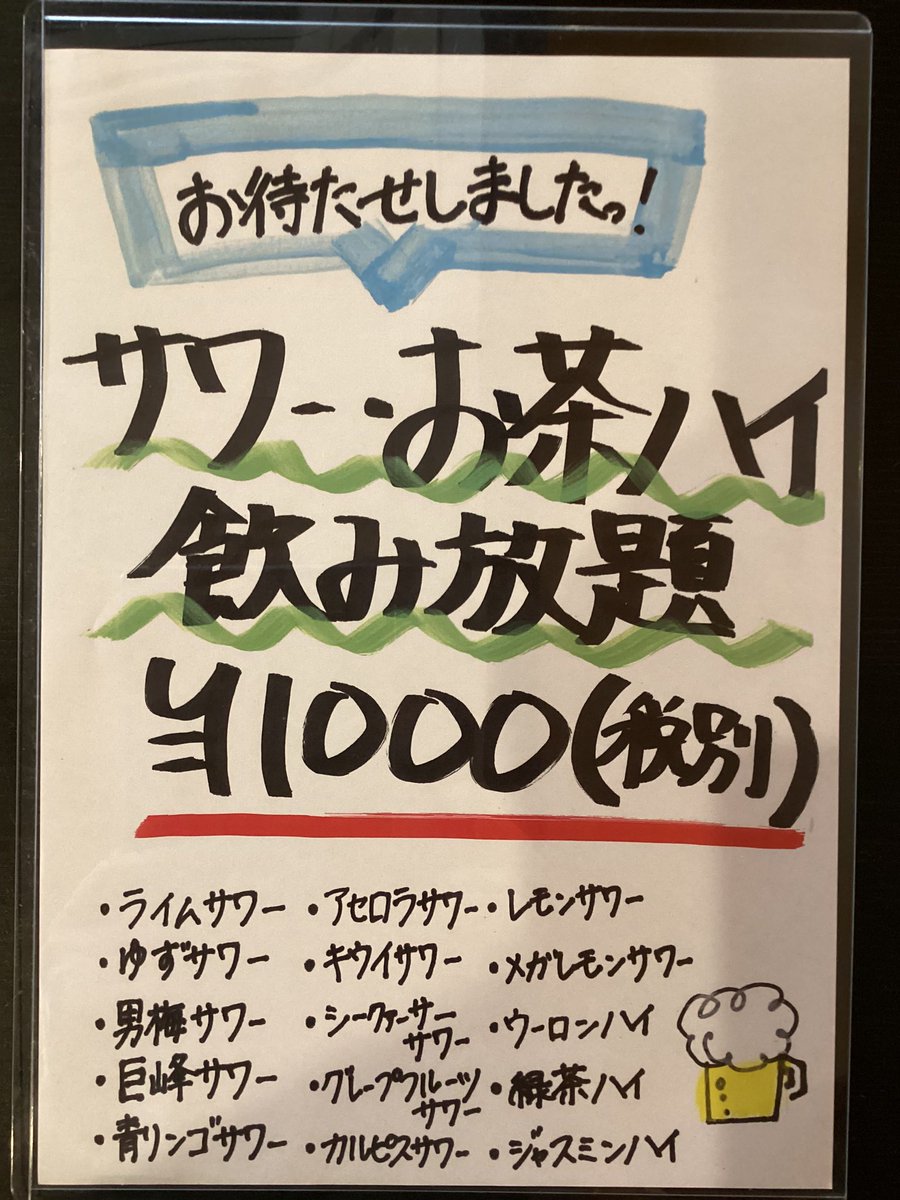 お待たせしましたっ!
サワー・お茶ハイ
飲み放題
¥1000(税別)
・ライムサワー
・ゆずサワー
・男梅サワー
・巨峰サワー
・青リンゴサワー
・アセロラサワー
・キウイサワー
・シークァーサー
サワー
・グレープフルーツ
サワー
・カルピスサワー
・レモンサワー
・メガレモンサワー
・ウーロンハイ
・緑茶ハイ
・ジャスミンハイ